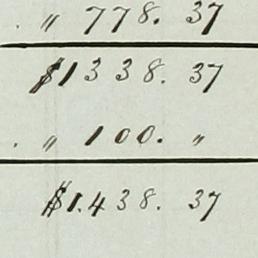 . " 778. 37
$1338. 37
. " 100. "
$1.438. 37